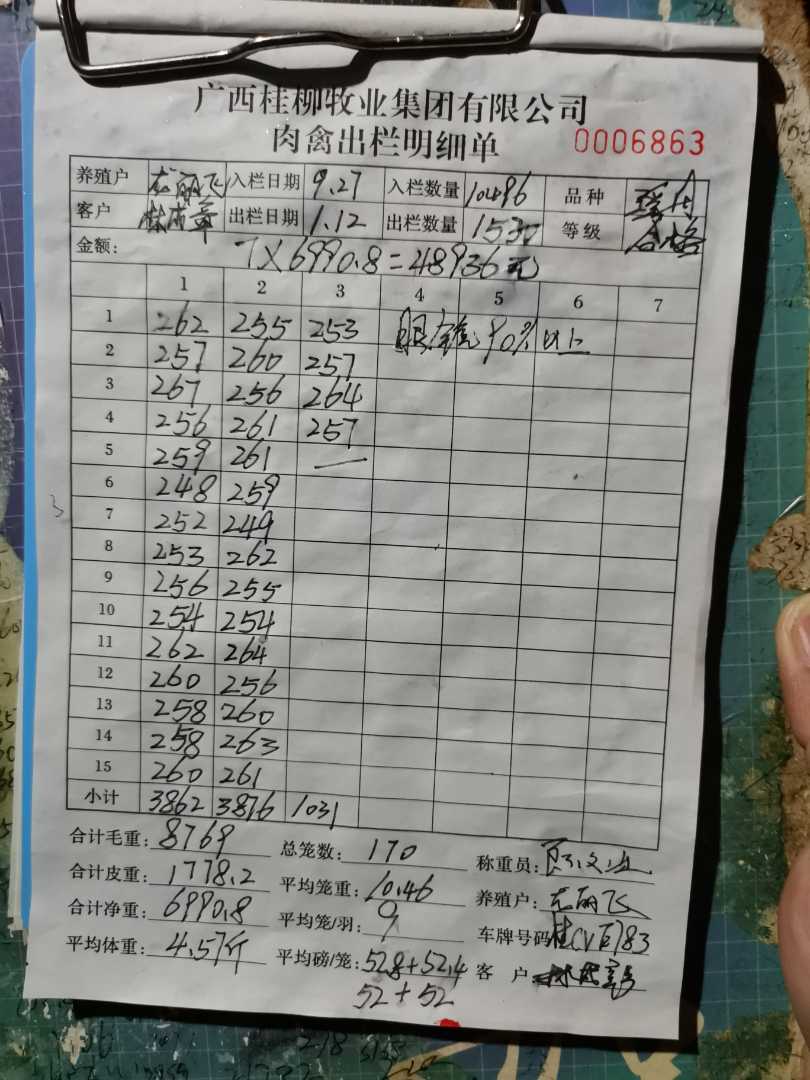 广西桂柳牧业集团有限公司
肉禽出栏明细单 0006863
养殖户 龙丽飞 入栏日期 9.27 入栏数量 10496 品种
客户 出栏日期 1.12 出栏数量 1530 等级 合格
金额: 7×6990.8=48936元
1 2 3 4 5 6 7
1 262 255 253 90% 以上
2 257 260 257
3 267 256 264
4 256 261 257
5 259 261 —
6 248 259
7 252 249
8 253 262
9 256 255
10 254 254
11 262 264
12 260 256
13 258 260
14 258 263
15 260 261
小计 3862 3876 1031
合计毛重: 8769 总笼数: 170 称重员:
合计皮重: 1778.2 平均笼重: 10.46 养殖户: 龙丽飞
合计净重: 6990.8 平均笼/羽: 9 车牌号码
平均体重: 4.57斤 平均磅/笼: 52.8+52.4 客户
52+52